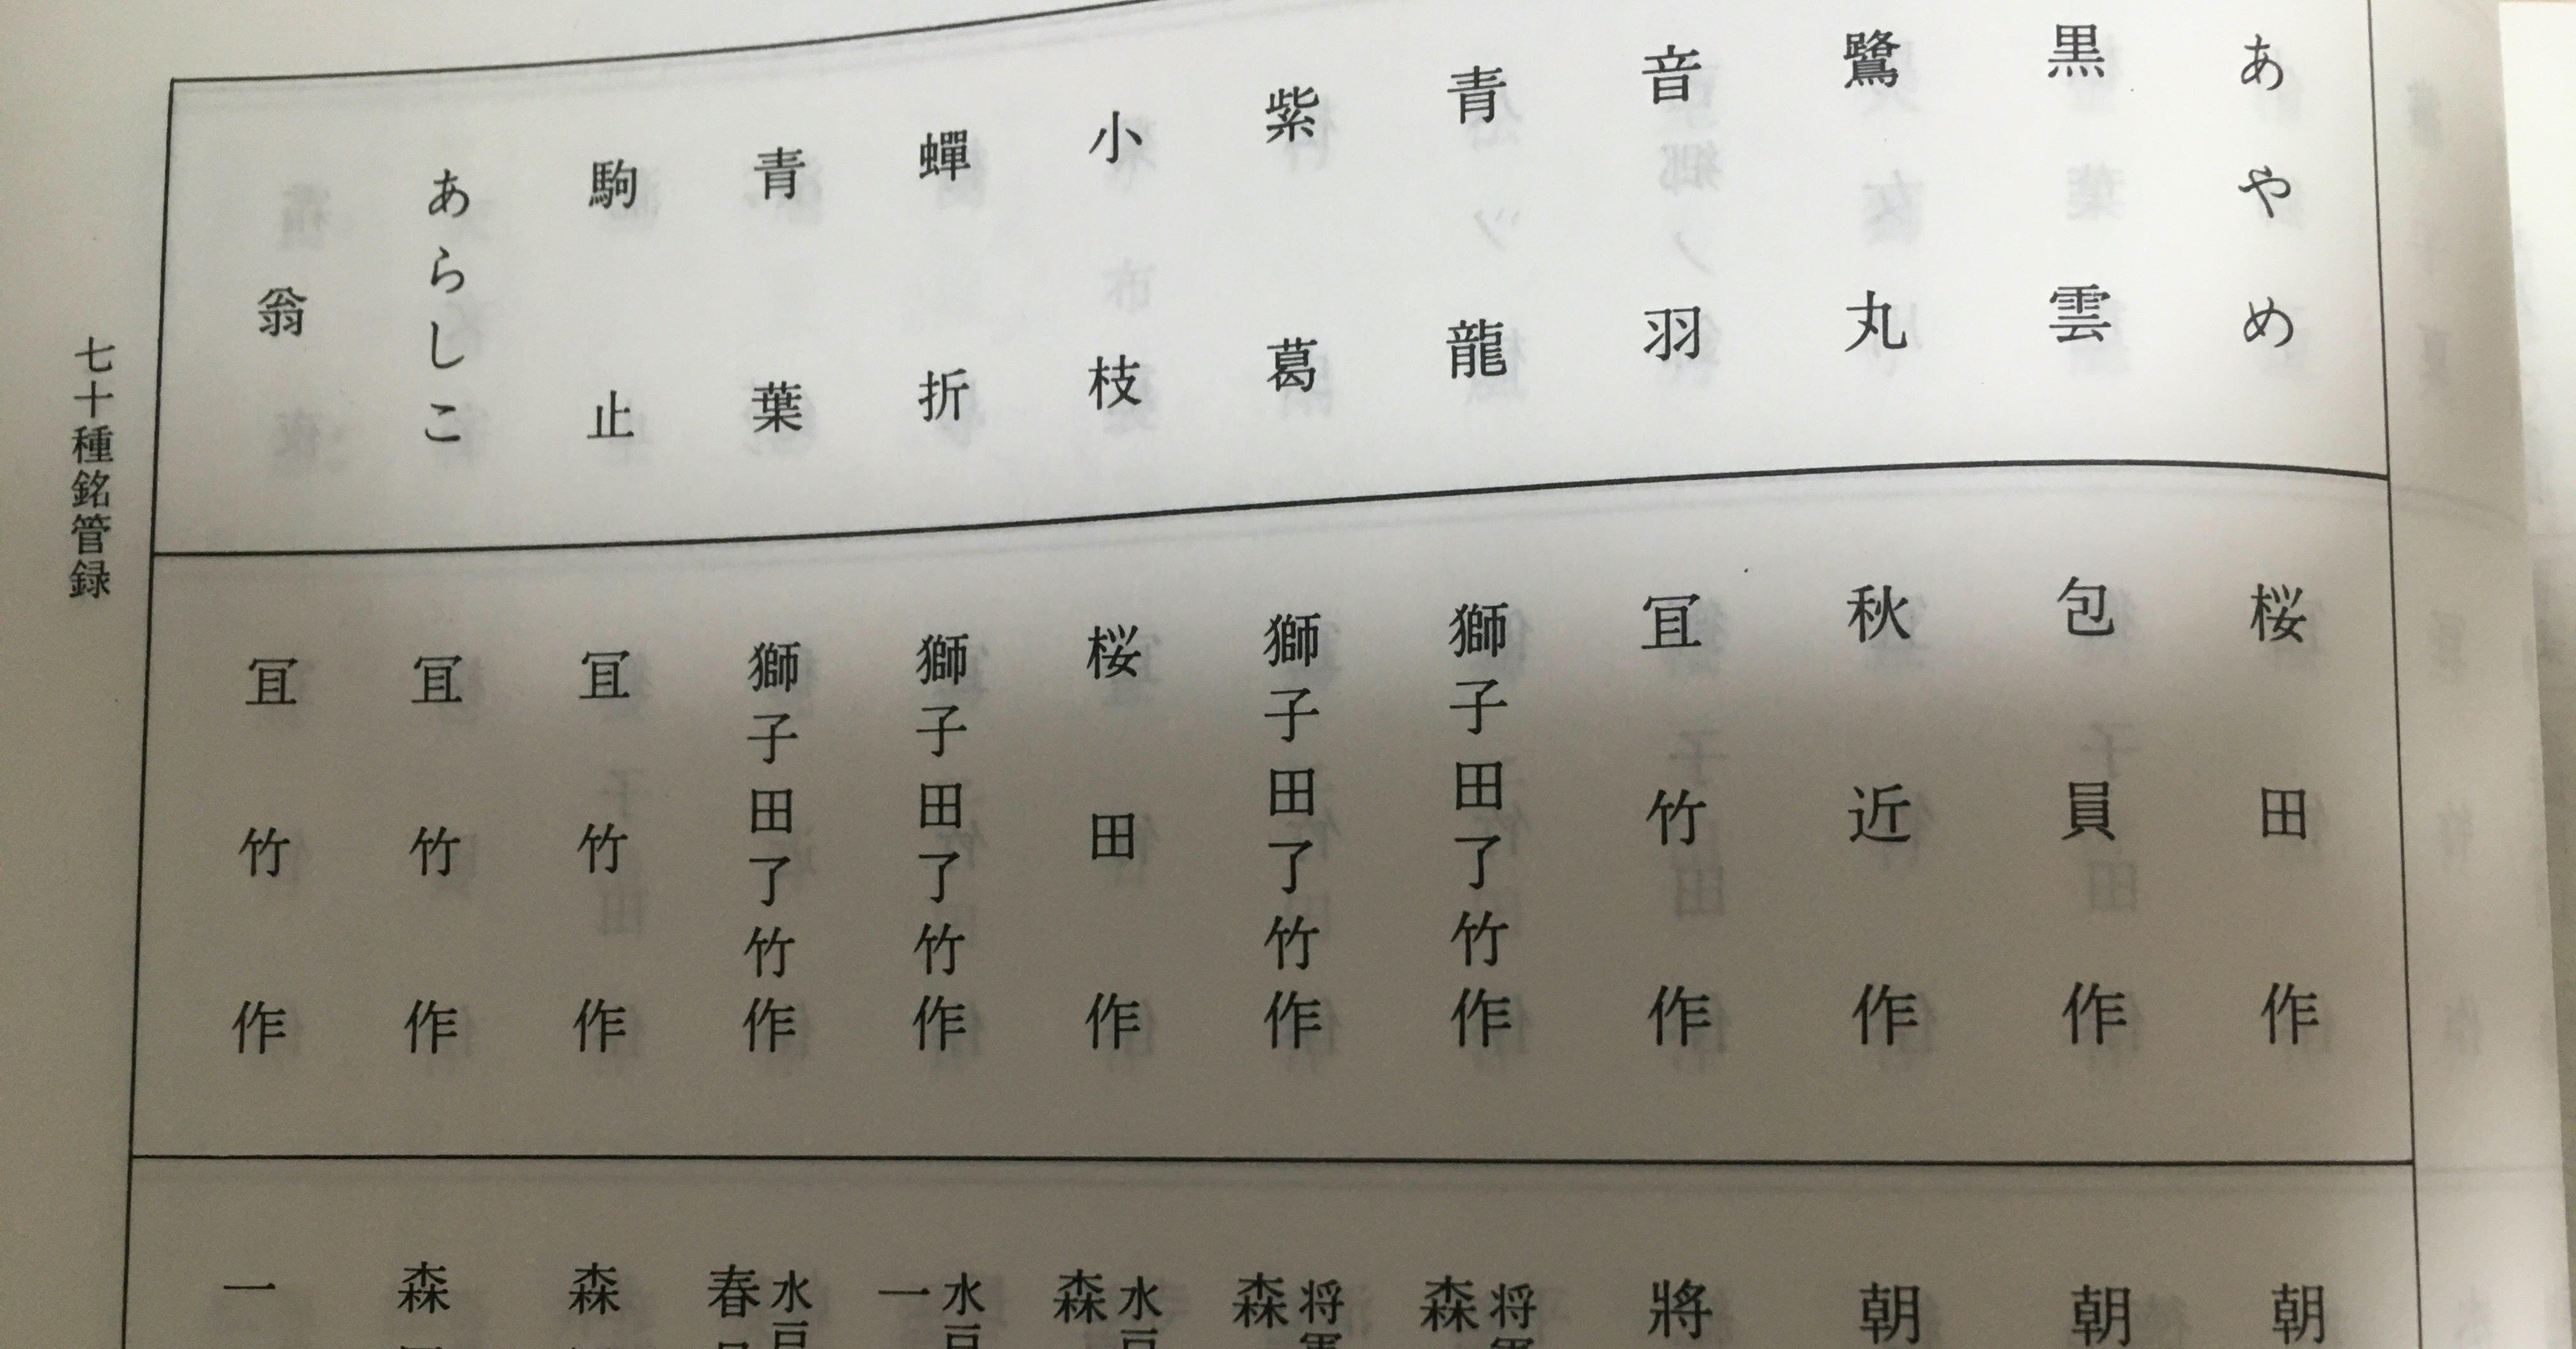 あやめ
桜田作
朝
黒雲
包員作
朝
鷺丸
秋近作
朝
音羽
冝竹作
將
青龍
獅子田了竹作
将軍
森
紫葛
獅子田了竹作
将軍
森
小枝
桜田作
水戸
森
蟬折
獅子田了竹作
水戸
一
青葉
獅子田了竹作
水戸
春
駒止
冝竹作
森
あらしこ
冝竹作
森
翁
冝竹作
一
七十種銘管録